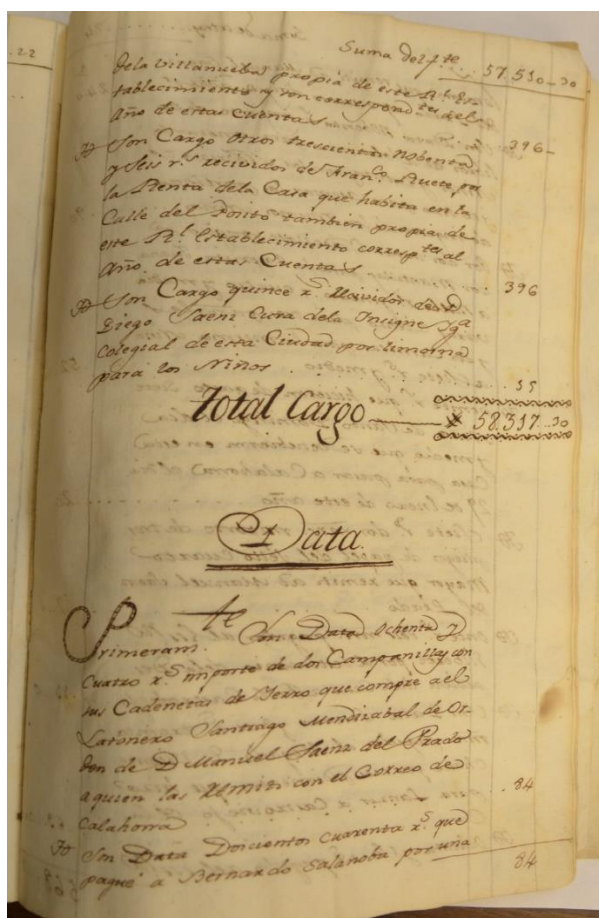 22
Suma del fte 57.510-30
dela Villanueba propia de este Rl. Es-
tablecimiento y son correspondtes del
Año de estas Cuentas 396-
Yd Son Cargo Otros trescientos Nobenta
y Seis rs. recividos de Franco Ruete por
la Renta dela Casa que habita en la
Calle del Posito tambien propia de
este Rl. Establecimiento corresptes al
Año de estas Cuentas 396
Yd Son Cargo quince rs. Rxividos de D
Diego Saenz Cura dela Insigne Yga
Colegial de esta Ciudad por limosna
para los Niños 15
Total Cargo 58.317..30
Data.
Primeramte Son Data Ochenta y
Cuatro rs. importe de dos Campanillas con
sus Cadenetas de Yerro que compre a el
Latonero Santiago Mendizabal de Or-
den de D Manuel Saenz del Prado
a quien las Remiti con el Correo de
Calahorra 84
Yd Son Data Doscientos cuarenta rs. que
pagué a Bernardo Salanoba por una
84